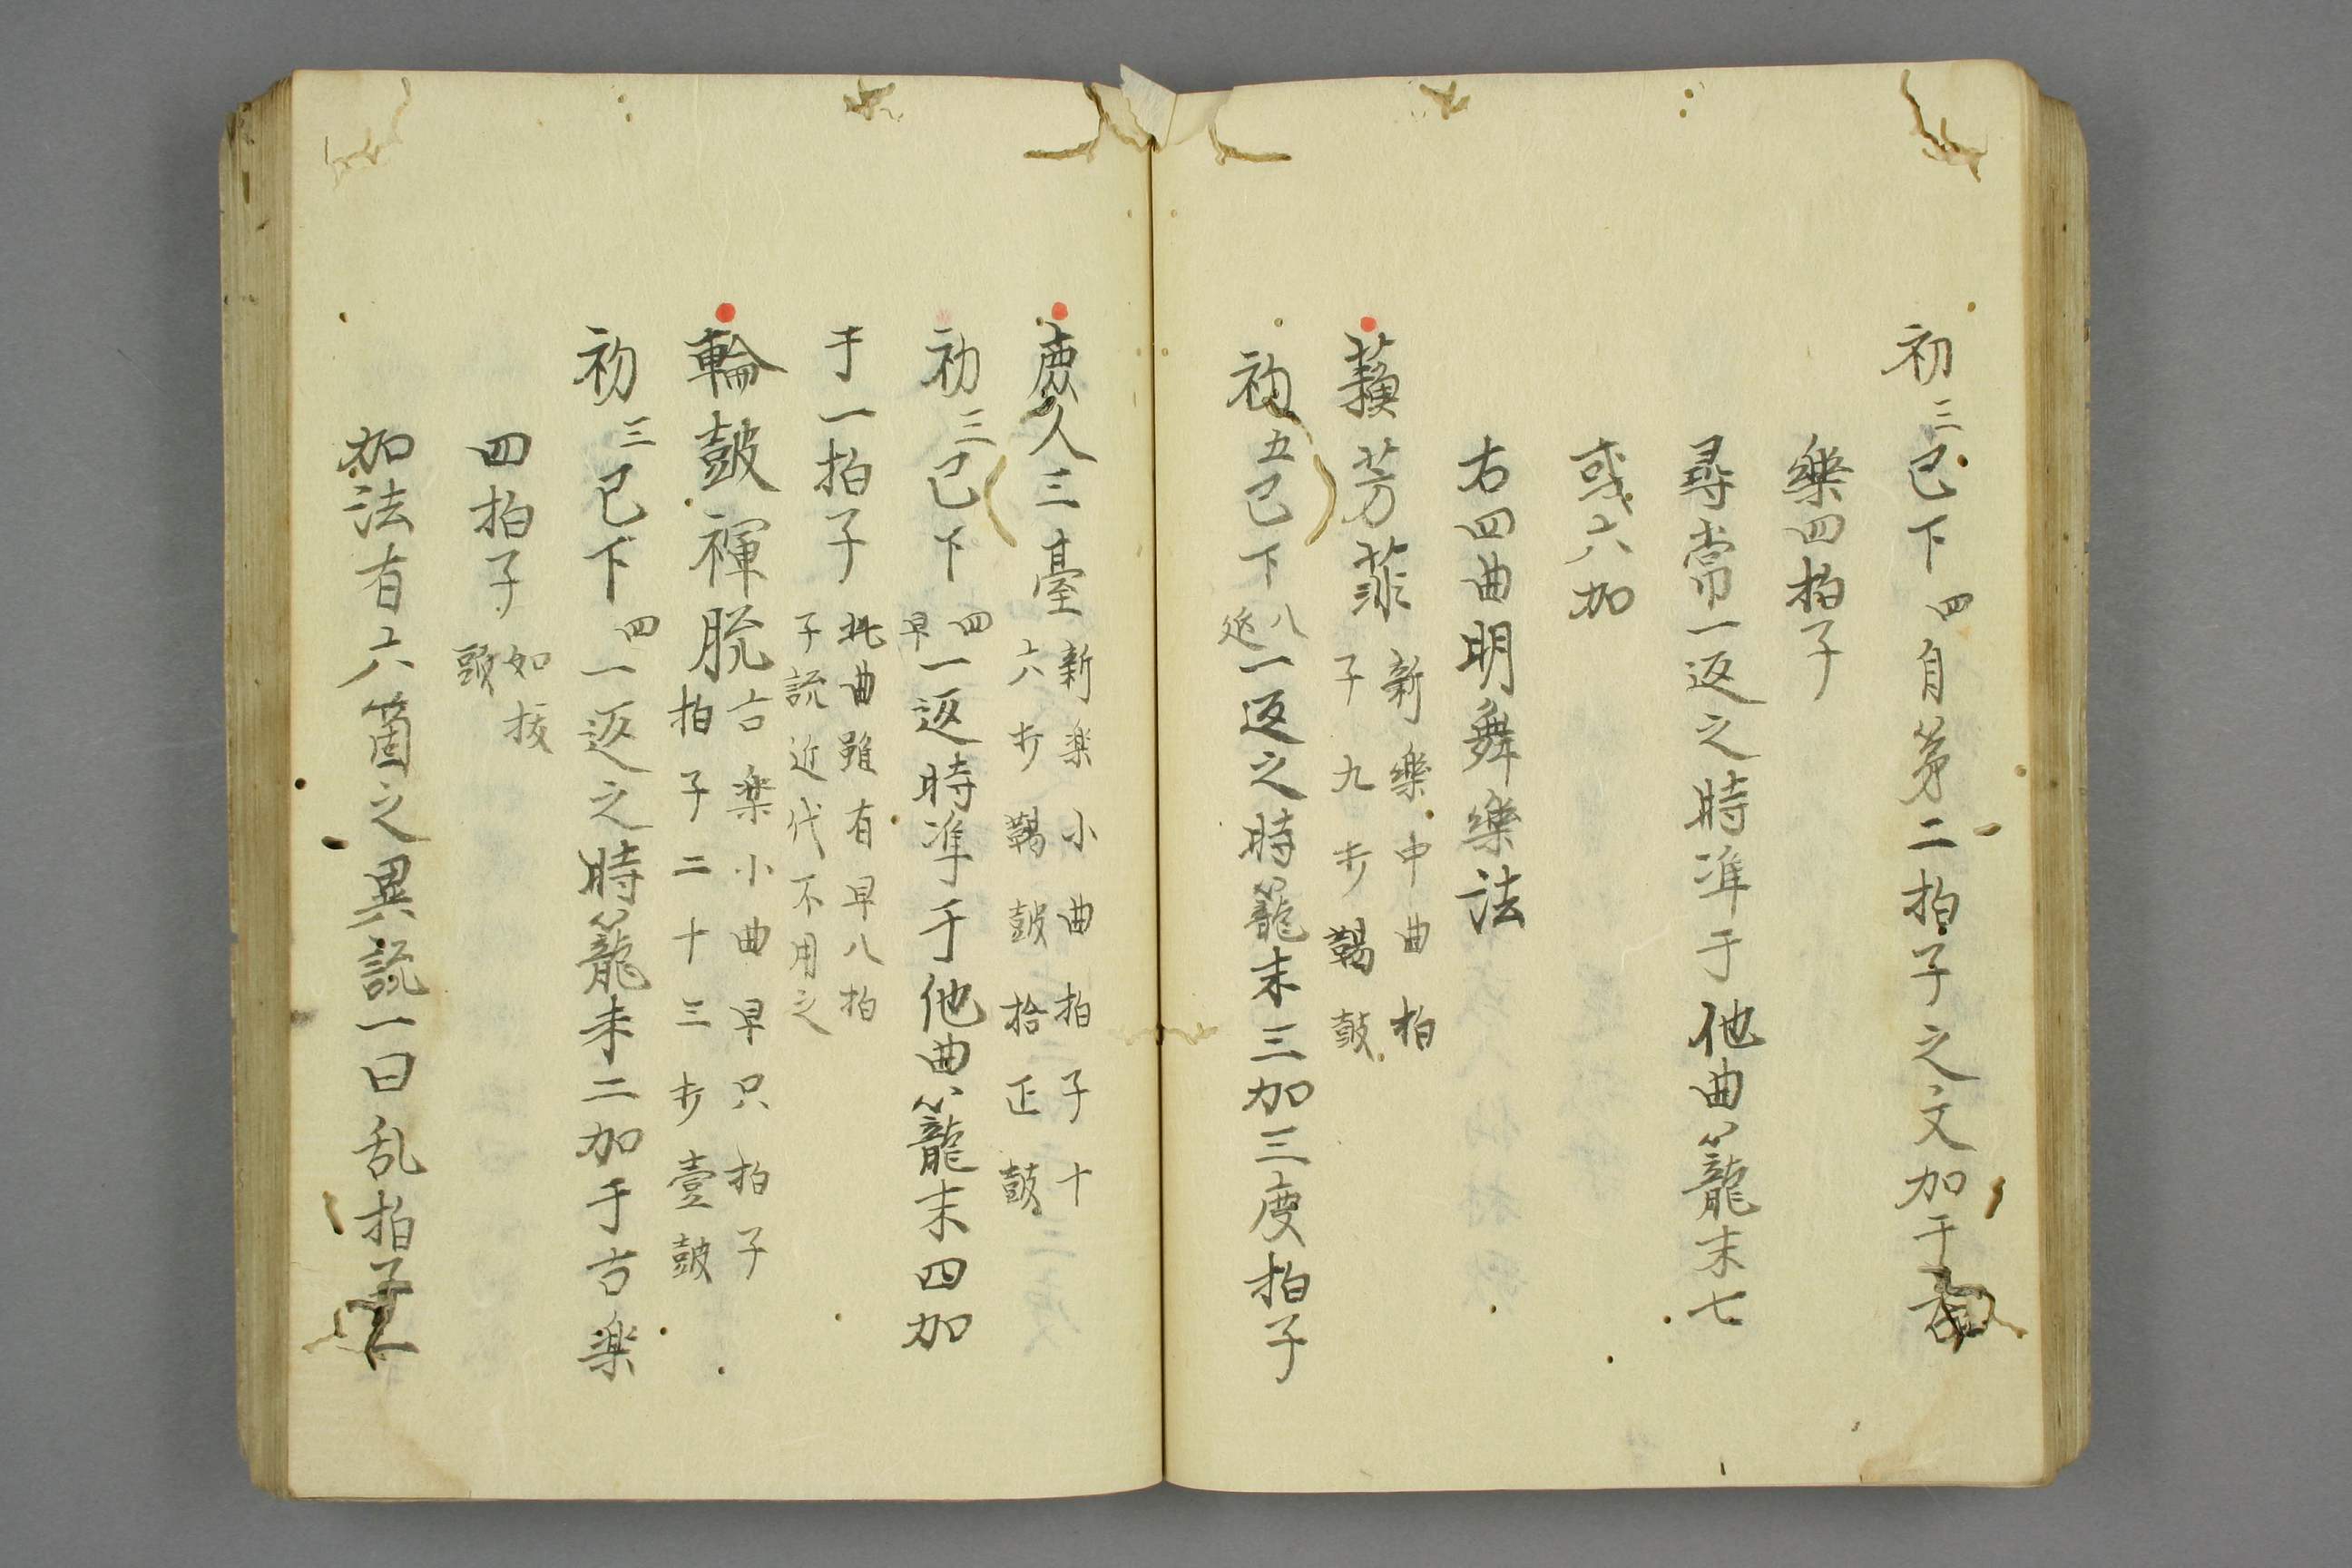 初三已下四自第二拍子之文加于古
樂四拍子
尋常一返之時准于他曲籠末七
或六加
右四曲明舞樂法
蘇芳菲新樂中曲拍
子九步鞨鼓
初五已下八返一返之時籠末三加三度拍子
庶人三臺新楽小曲拍子十
六步鞨鼓拾正鼓
初三已下四早一返時准于他曲籠末四加
于一拍子此曲雖有早八拍
子説近代不用之
輪鼓褌脱古楽小曲早只拍子
拍子二十三步壹鼓
初三已下四一返之時籠末二加于古楽
四拍子如拔
頭
加法有六箇之異説一曰乱拍子